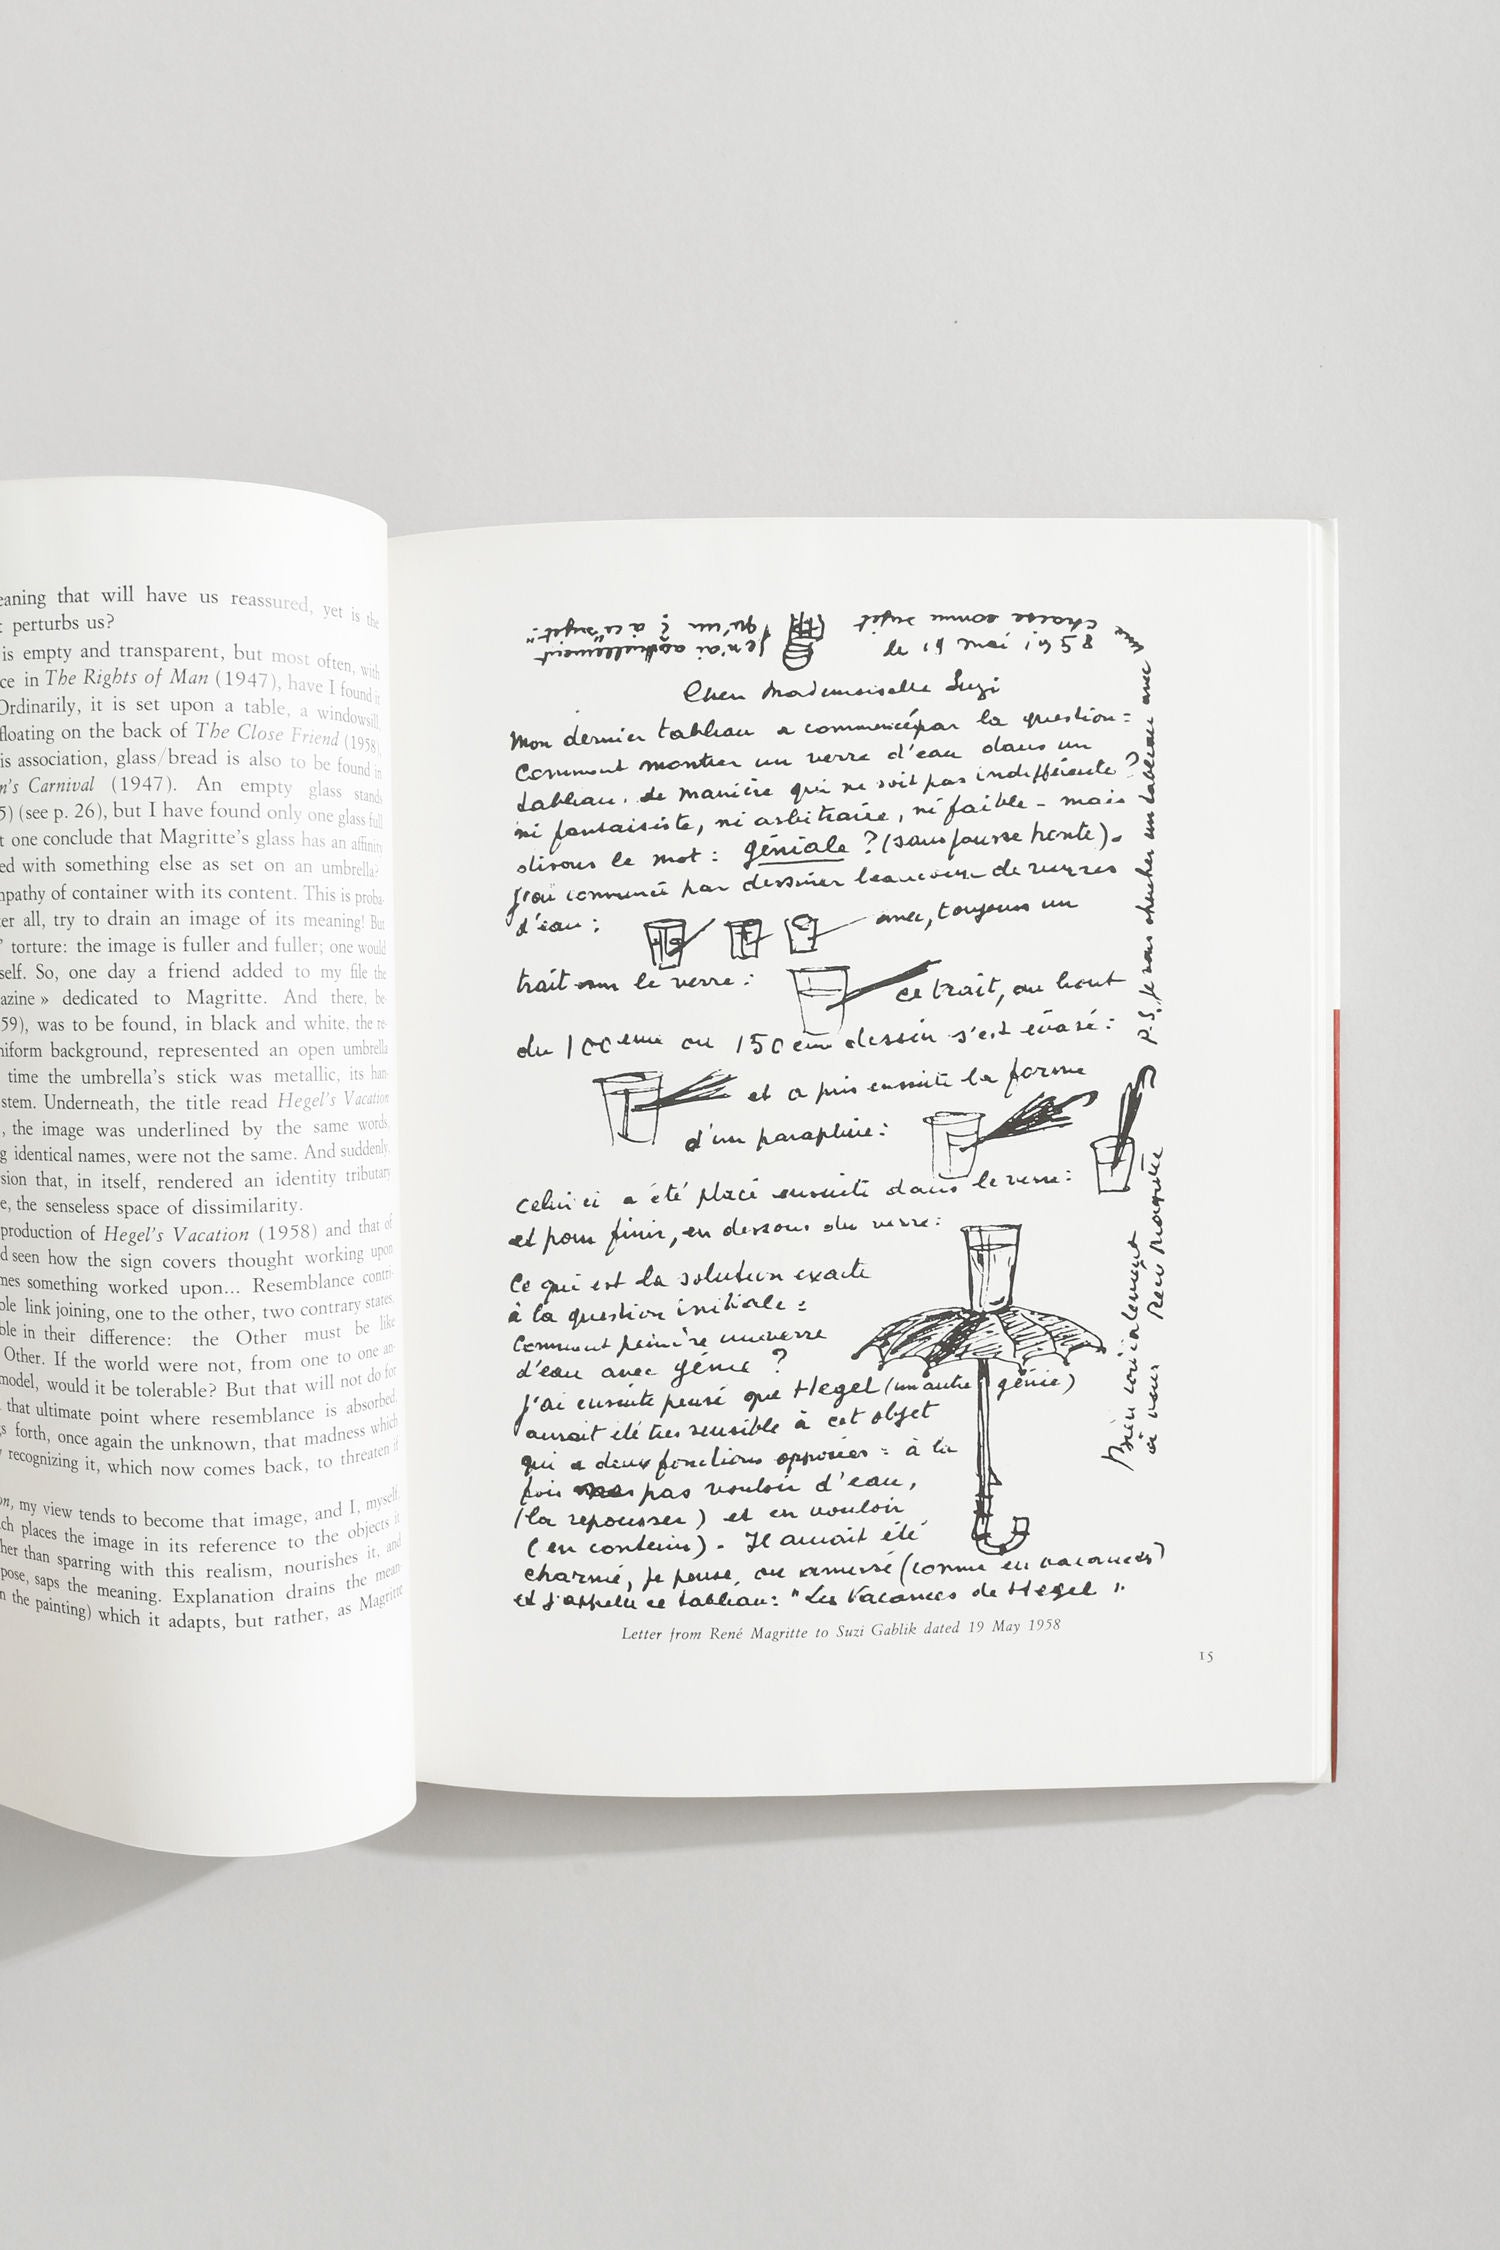 eaning that will have us reassured, yet is the
t perturbs us?
is empty and transparent, but most often, with
ce in The Rights of Man (1947), have I found it
Ordinarily, it is set upon a table, a windowsill,
floating on the back of The Close Friend (1958)
is association, glass/bread is also to be found in
n's Carnival (1947). An empty glass stands
5) (see p. 26), but I have found only one glass full
t one conclude that Magritte's glass has an affinity
ed with something else as set on an umbrella?
mpathy of container with its content. This is proba-
er all, try to drain an image of its meaning! But
" torture: the image is fuller and fuller; one would
self. So, one day a friend added to my file the
azine» dedicated to Magritte. And there, be-
59), was to be found, in black and white, the re-
niform background, represented an open umbrella
time the umbrella's stick was metallic, its han-
stem. Underneath, the title read Hegel's Vacation
, the image was underlined by the same words,
g identical names, were not the same. And suddenly,
sion that, in itself, rendered an identity tributary
e, the senseless space of dissimilarity.
production of Hegel's Vacation (1958) and that of
d seen how the sign covers thought working upon
mes something worked upon... Resemblance contri-
ble link joining, one to the other, two contrary states,
ble in their difference: the Other must be like
Other. If the world were not, from one to one an-
model, would it be tolerable? But that will not do for
that ultimate point where resemblance is absorbed,
gs forth, once again the unknown, that madness which
y recognizing it, which now comes back, to threaten it
on, my view tends to become that image, and I, myself
ch places the image in its reference to the objects it
her than sparring with this realism, nourishes it, and
pose, saps the meaning. Explanation drains the mean-
n the painting) which it adapts, but rather, as Magritte
le 19 mai 1958
Chère Mademoiselle Suzi
Mon dernier tableau a commencé par la question:
Comment montrer un verre d'eau dans un
tableau, de manière qui ne soit pas indifférente?
ni fantaisiste, ni arbitraire, ni faible - mais
disons le mot: géniale? (sans fausse honte).
J'ai commencé par dessiner beaucoup de verres
d'eau:
avec, toujours un
trait sur le verre:
ce trait, au bout
du 100eme ou 150eme dessin s'est évasé:
et a pris ensuite la forme
d'un parapluie:
Celui ci a été placé ensuite dans le verre:
et pour finir, en dessous du verre:
Ce qui est la solution exacte
à la question initiale:
Comment peindre un verre
d'eau avec génie?
J'ai ensuite pensé que Hegel (un autre génie)
aurait été très sensible à cet objet
qui a deux fonctions opposées: à la
fois pas vouloir d'eau,
(la repousser) et en vouloir
(en contenir). Il aurait été
charmé, je pense, ou amusé (comme en vacances)
et j'appelle ce tableau: "Les Vacances de Hegel".
Bien cordialement
à vous René Magritte
P.S. Je vais chercher un tableau avec une
chaise comme sujet
J'en ai actuellement
qu'un à ce "sujet":
Letter from René Magritte to Suzi Gablik dated 19 May 1958
15